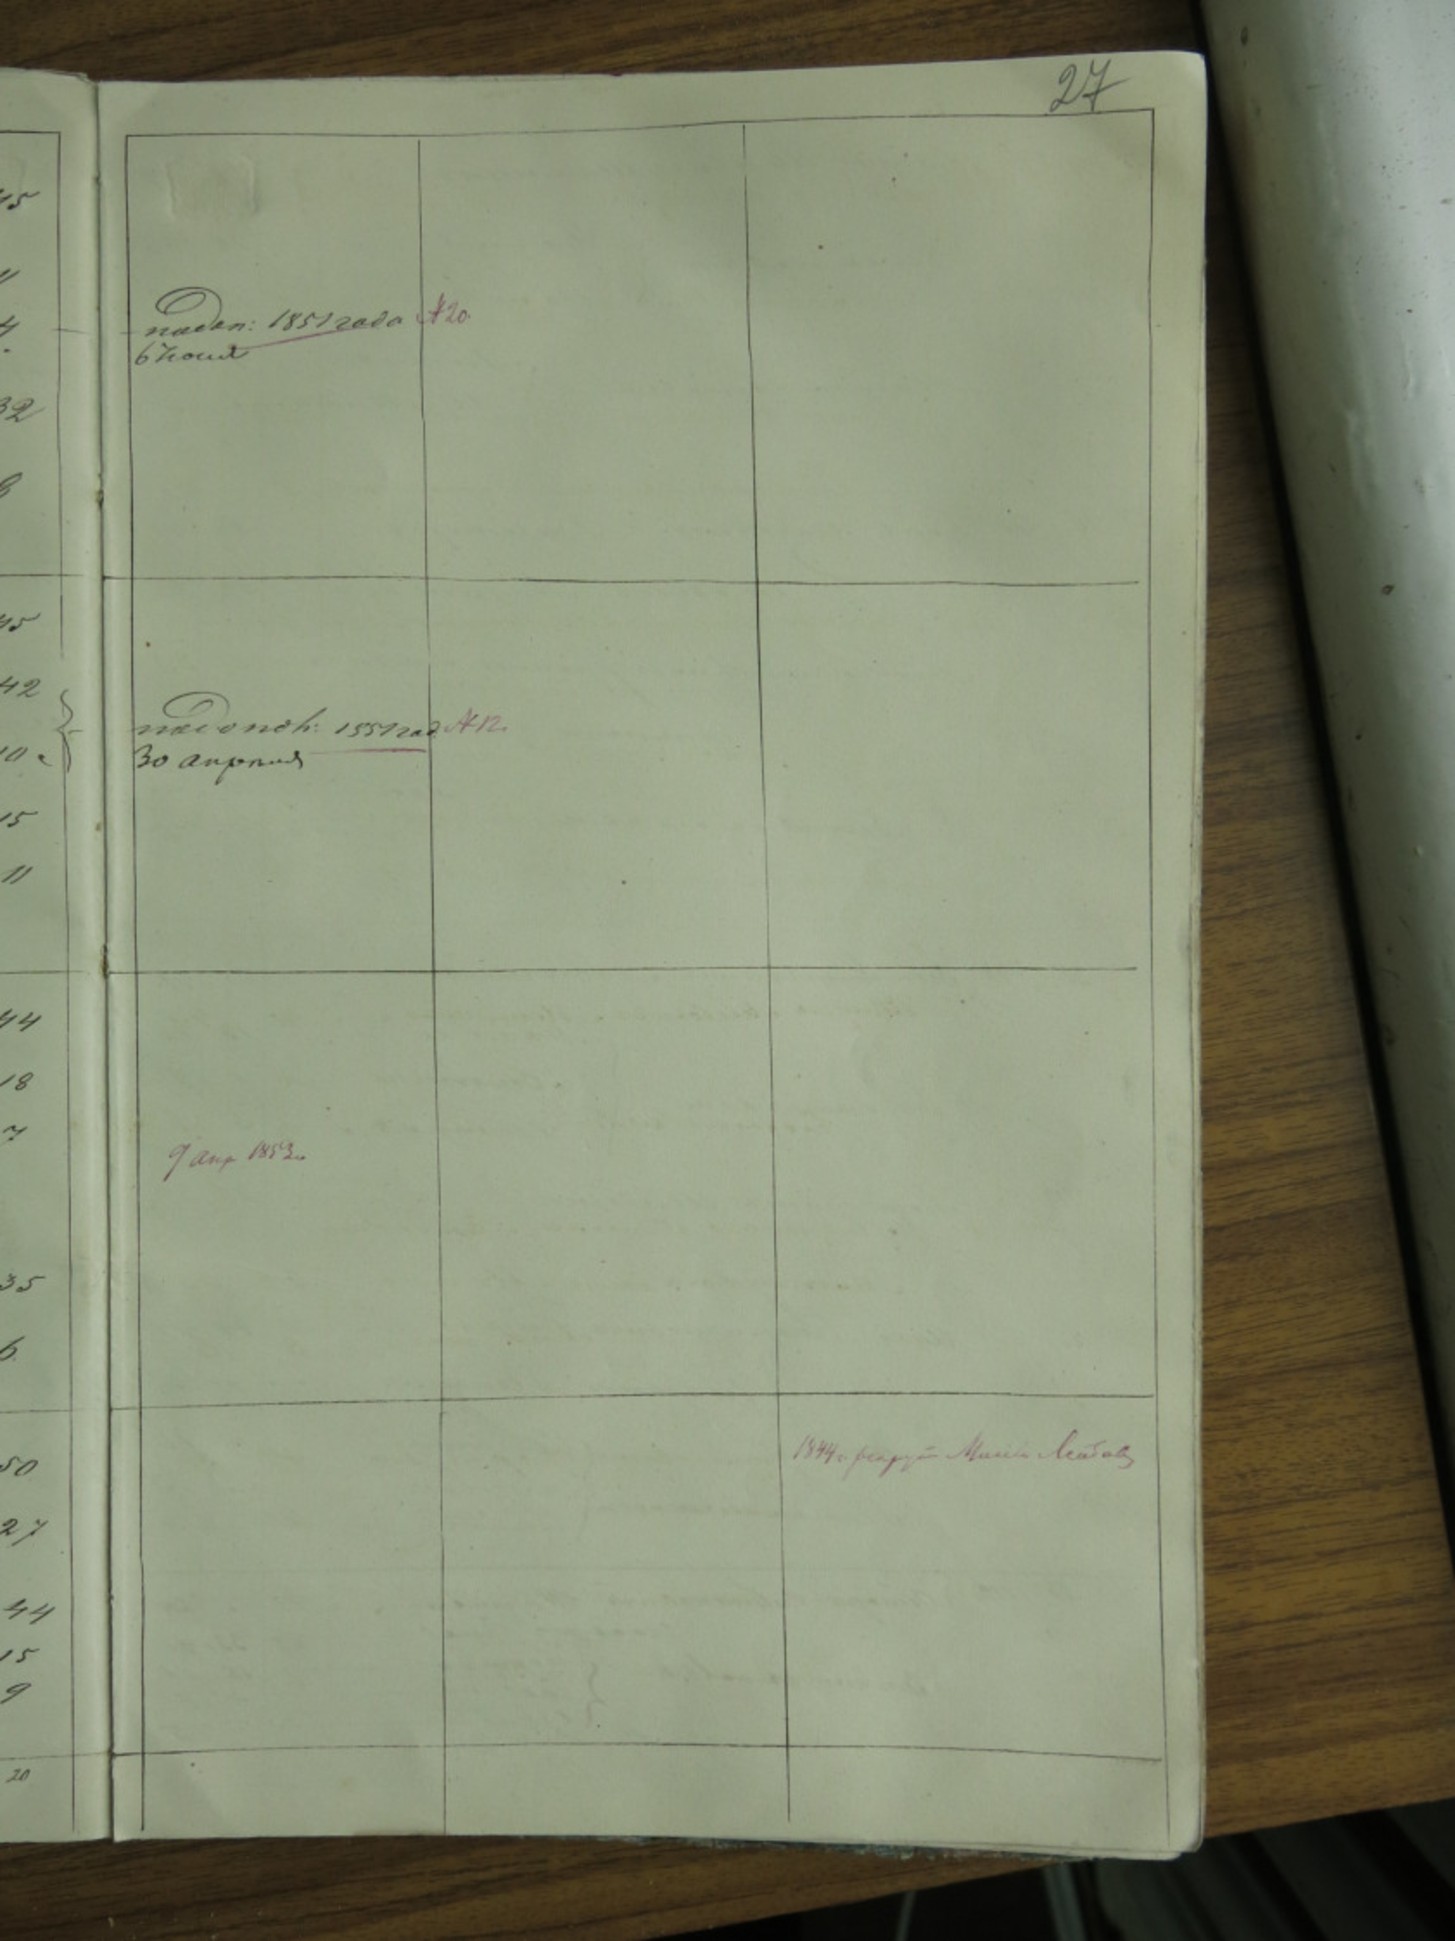 27
15
11
4
1851 года №20
6 июня
32
6
45
42
1851 год №12.
10
30 апреля
15
11
44
18
7
9 апр 1853 г.
35
6
1844 г. рекрут
50
27
44
15
9
20